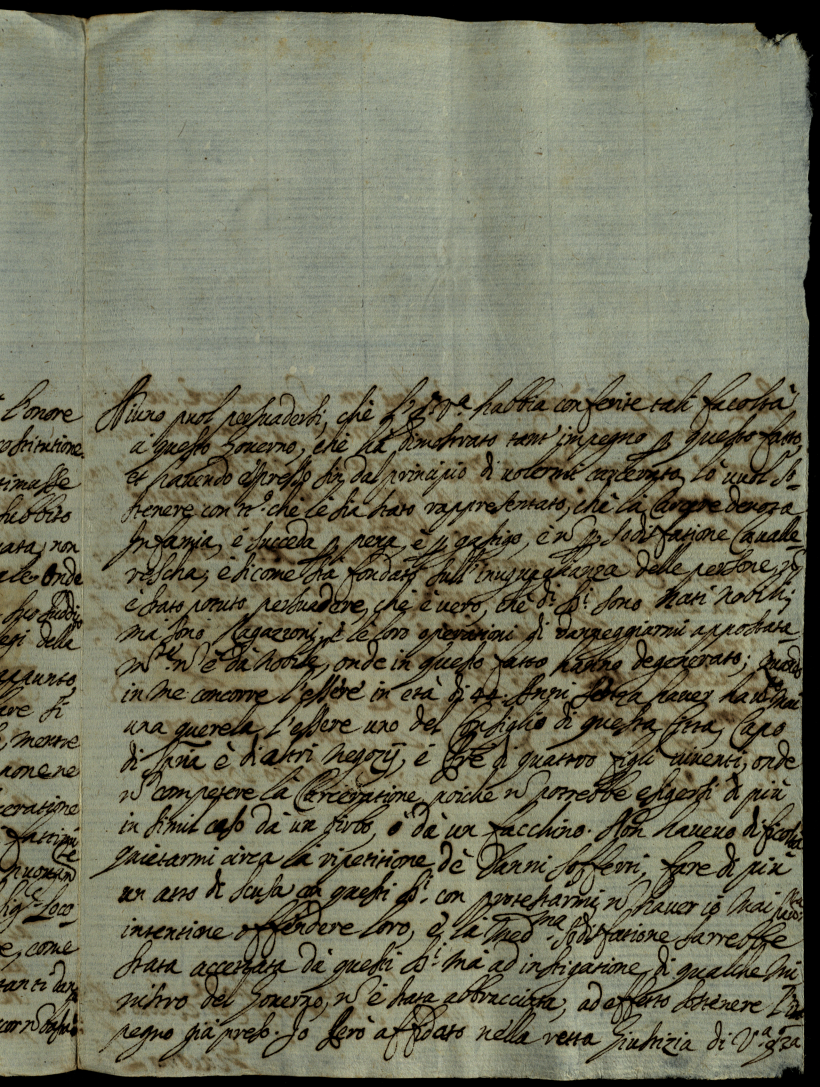 l'onore
rostitutione
timasse
subbito
cata, non
ale onde
suo suddito
egi della
appunto,
are si
mentre
pone ne
ceratione
fattimi
Loco
e, come
tanti dan
Niuno puol persuadersi, che habbia conferite tali facoltà
à questo Governo, che hà dimostrato tant' impegno p questo fatto,
et havendo espresso sin dal principio di volermi carcerato, lò vuol so-
stenere con tt.º che le sia stato rappresentato, che la Carcere denota
Infamia, è succeda p pena, e p gastigo, è nō p sodisfatione Cavalle-
rescha, è sicome stà fondato sull' inuguaglianza delle persone, nō
è stato potuto persuadere, che è vero, che d.i SS.i sono Nati nobili,
ma sono Ragazzoni, è le loro operationi di danneggiarmi appostata
m.te nō è dà Nobile, onde in questo fatto hanno degenerato; quando
in me concorre l'essere in età di 44. Anni senza haver hauto mai
una querela, l'essere uno del Consiglio di questa Città, Capo
di è di altri negozij, è Pre di quattro figli viventi, onde
nō competere la Carceratione, poiche nō potrebbe esigersi di più
in simil caso dà un birbo, ò dà un facchino. Non havevo difficoltà
quietarmi circa la ripetitione de Danni sofferti, fare di più
un atto di scusa à questi SS.i con protestarmi nō haver io mai
intentione offendere loro, è la med.ma sodisfatione sarrebbe
stata accettata dà questi SS.i mà ad instigatione di qualche Mi
nistro del Governo, nō è stata abbracciata, ad effetto sostenere l'Im
pegno già preso. Io però affidato nella retta Giustizia di V.ª